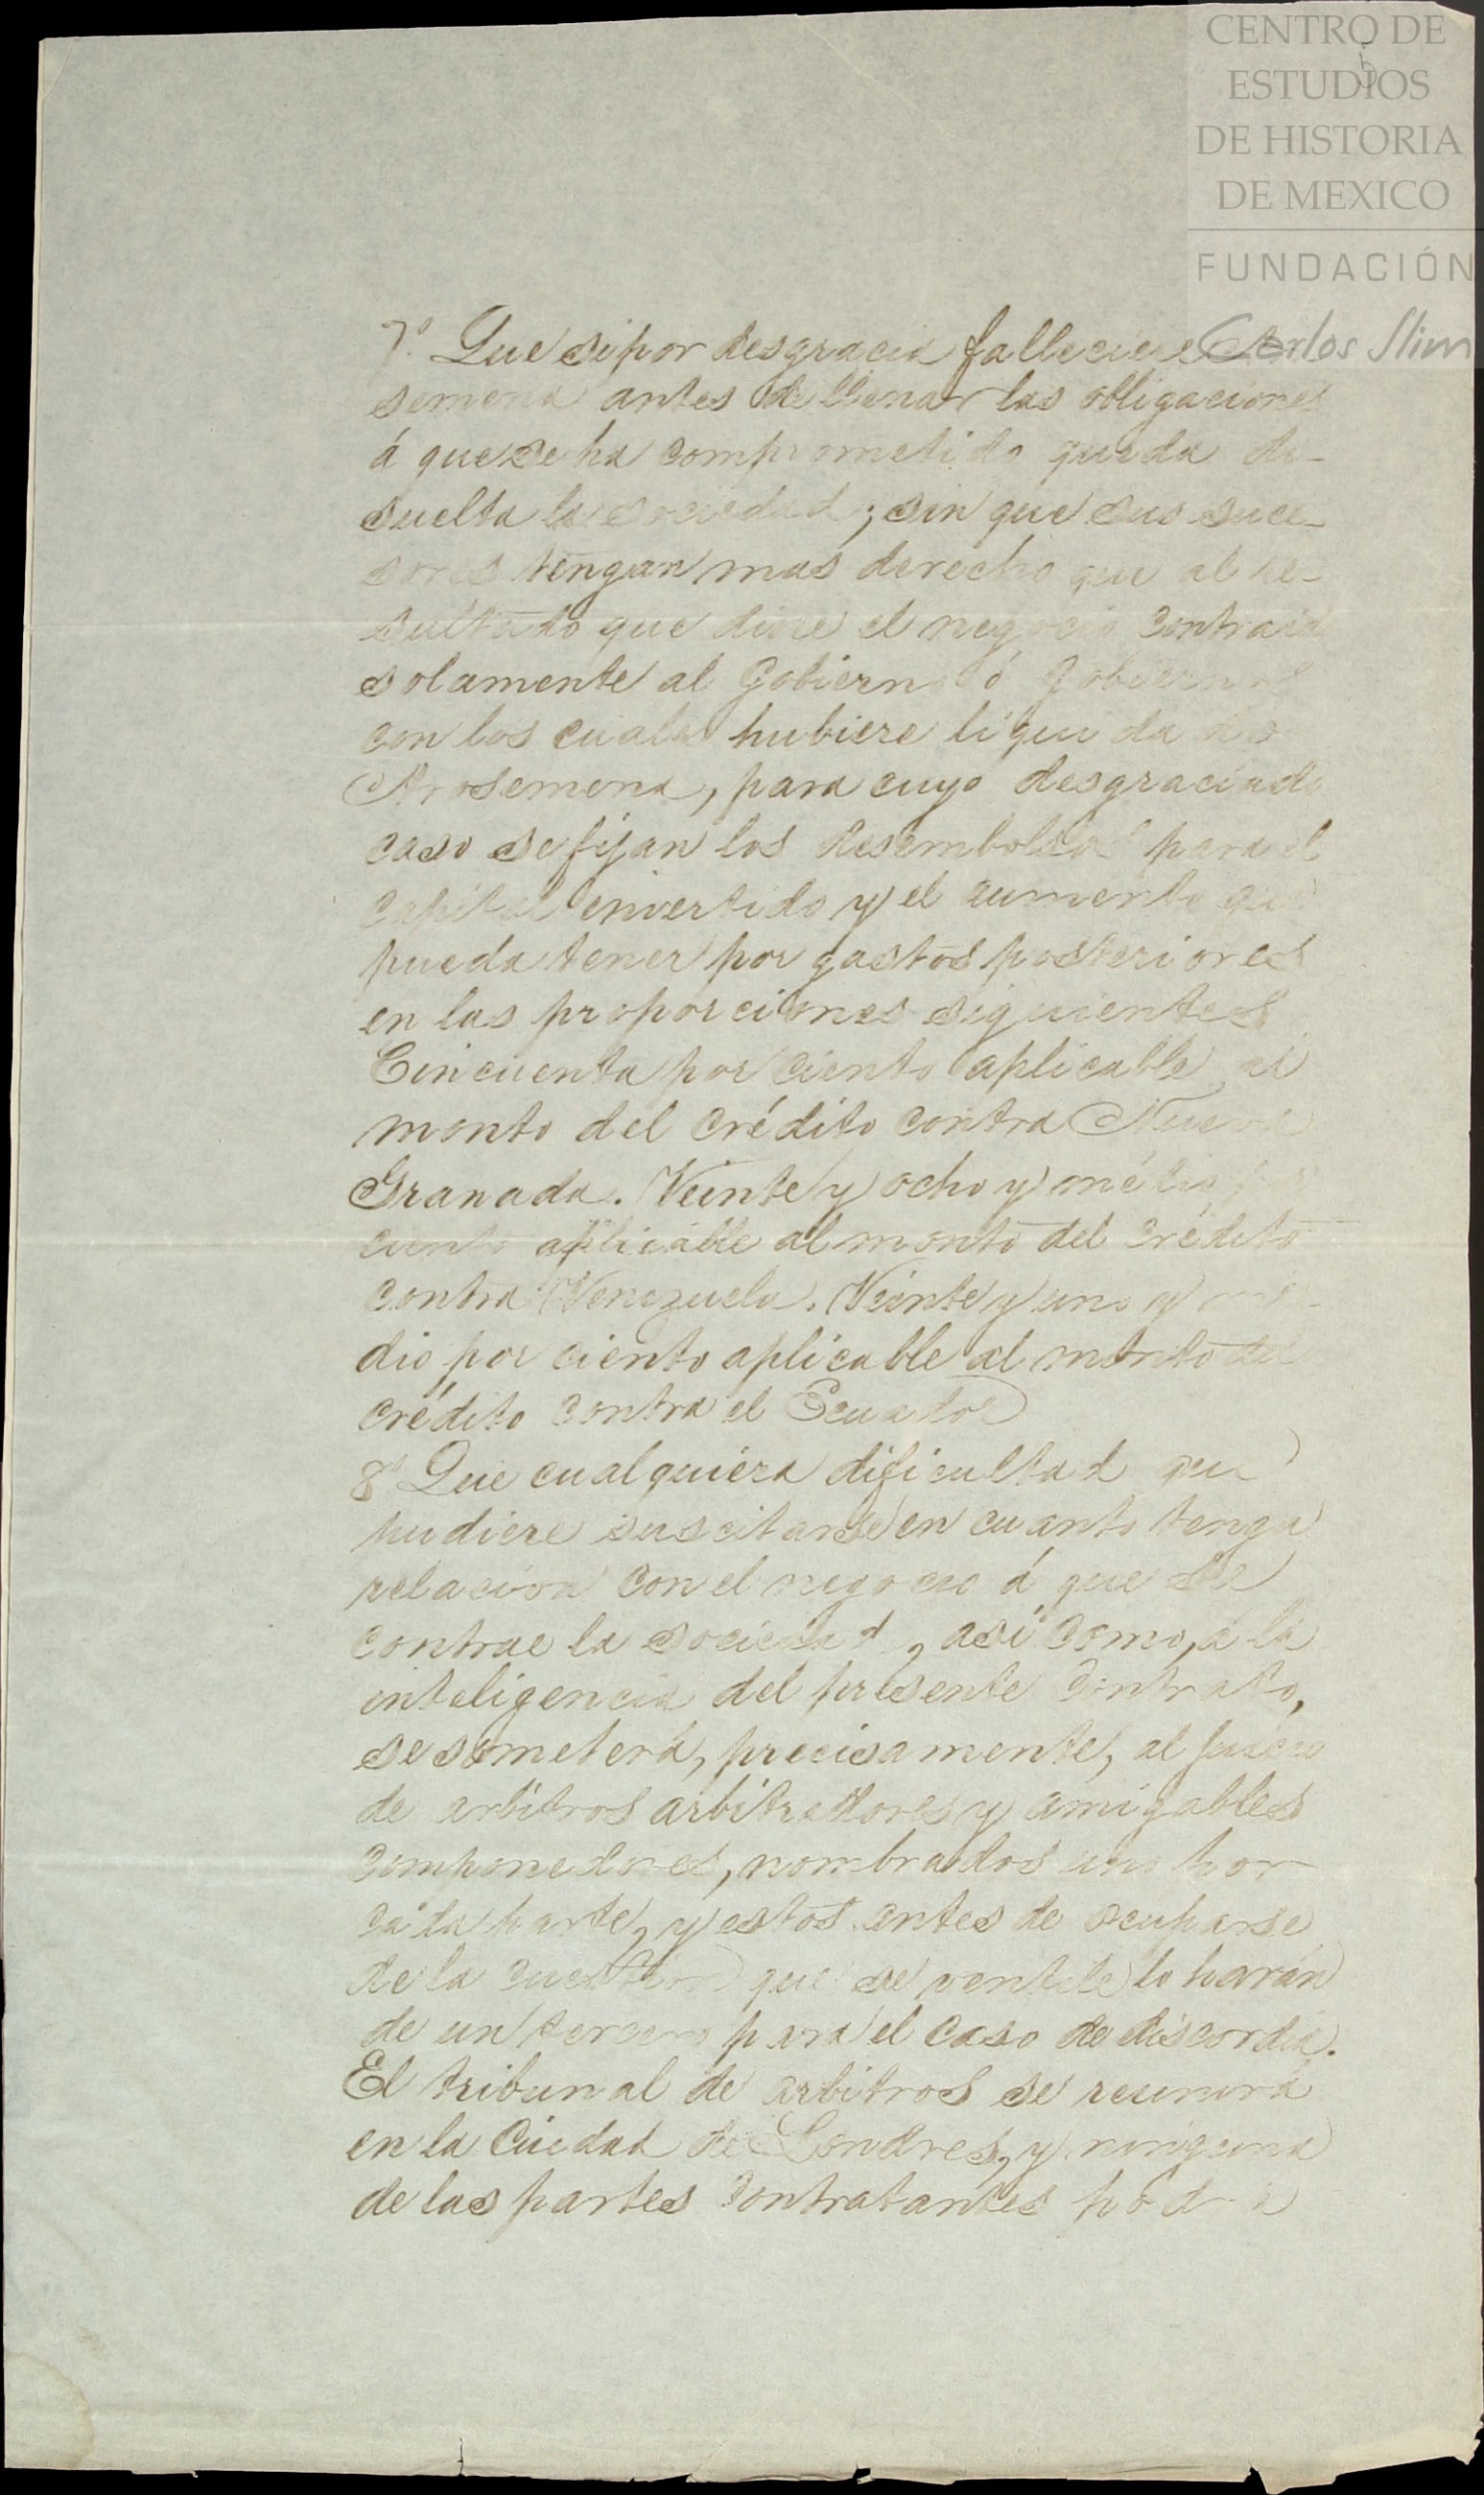 CENTRO DE
ESTUDIOS
DE HISTORIA
DE MEXICO
FUNDACIÓN
Carlos Slim
7º Que si por desgracia falleciere Aro
semena antes de llenar las obligaciones
á que se ha comprometido queda di-
suelta la sociedad; sin que sus suce-
sores tengan mas derecho que al re-
sultado que diere el negocio contraido
solamente al Gobierno ó Gobiernos
con los cuales hubiere liquidado
Arosemena, para cuyo desgraciado
caso se fijan los desembolsos para el
capital invertido y el aumento que
pueda tener por gastos posteriores
en las proporciones siguientes
Cincuenta por ciento aplicable al
monto del crédito contra Nueva
Granada. Veinte y ocho y medio por
ciento aplicable al monto del crédito
contra Venezuela. Veinte y uno y me-
dio por ciento aplicable al monto del
crédito contra el Ecuador
8º Que cualquiera dificultad que
pudiere suscitarse en cuanto tenga
relacion con el negocio á que se
contrae la sociedad, asi como, á la
inteligencia del presente contrato,
se someterá, precisamente, al juicio
de arbitros arbitradores y amigables
componedores, nombrados uno por
cada parte, y estos antes de ocuparse
de la cuestion que se ventile lo harán
de un tercero para el caso de discordia.
El tribunal de arbitros se reunirá
en la Ciudad de Londres, y ninguna
de las partes contratantes podrá